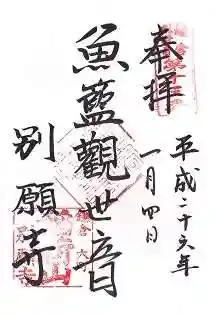 奉拝
平成二十六年
一月四日
魚籃觀世音
別願寺